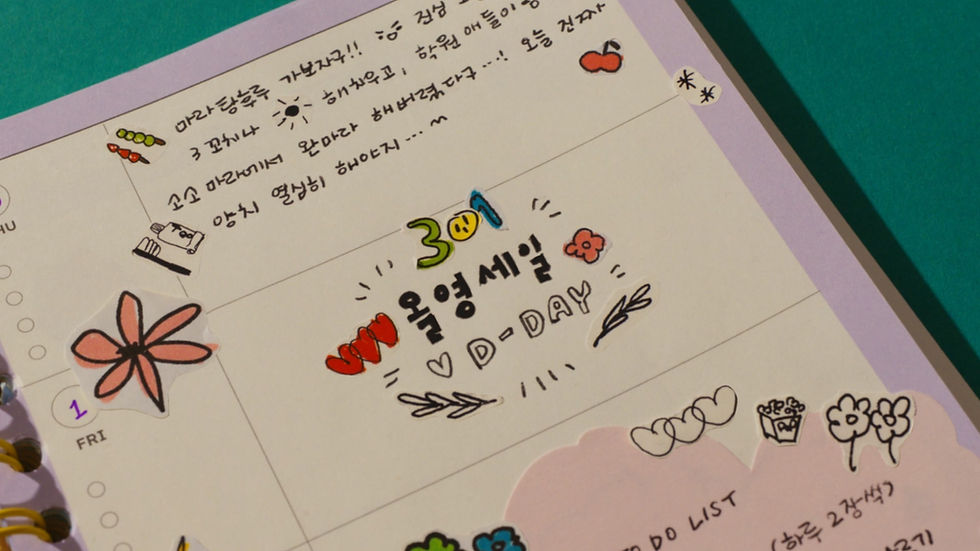 마라탕후루 가보자구!! 점심
3꼬치나 해치우고! 학원 애들이랑
소소 마라에서 완마라 해버렸다구...! 오늘 진짜
양치 열심히 해야지...~
301
올영세일
D-DAY
1
FRI
TO DO LIST
(하루 2장씩)